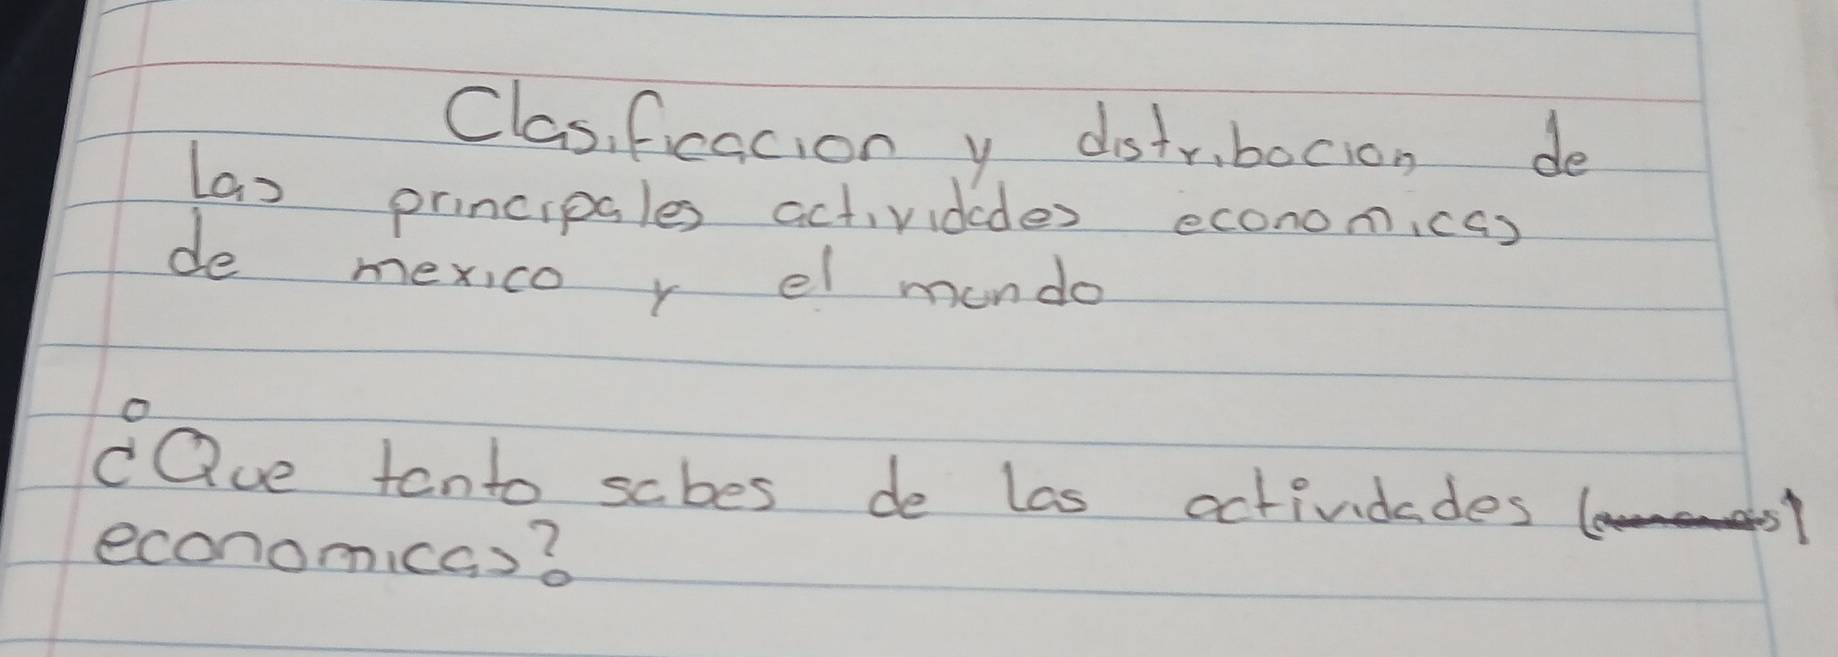 Clasificacion y distribucion de
las principales actividades economicas
de mexico y el mundo
¿Que tanto sabes de las actividades
economicas?